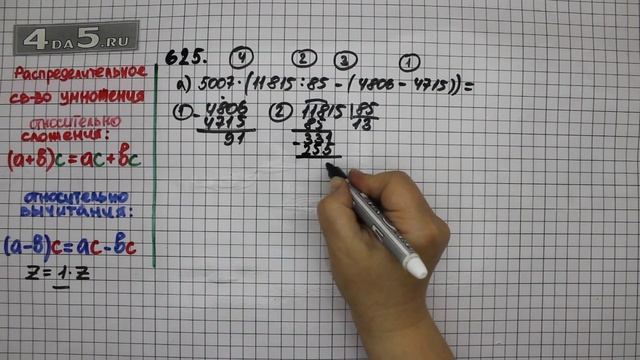 4DA5.RU
Распределительное
св-во умножения
относительно
сложения:
(a+b)c=ac+bc
относительно
вычитания:
(a-b)c=ac-bc
z=1·z
625.
4 2 3 1
а) 5007·(11815:85-(4806-4715))=
1 - 4806
4715
91
2 11815 | 85
85 13
- 331
255